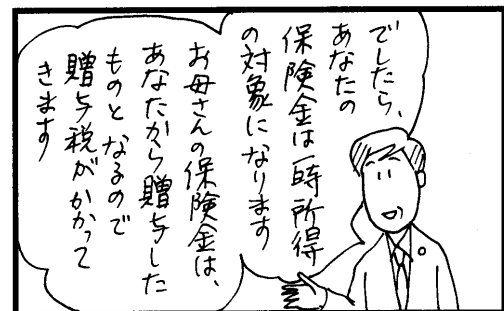 でしたら、
あなたの
保険金は一時所得
の対象になります
お母さんの保険金は、
あなたから贈与した
ものとなるので
贈与税がかかって
きます